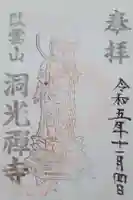 奉拝
令和五年十二月四日
臥雲山
洞光禅寺